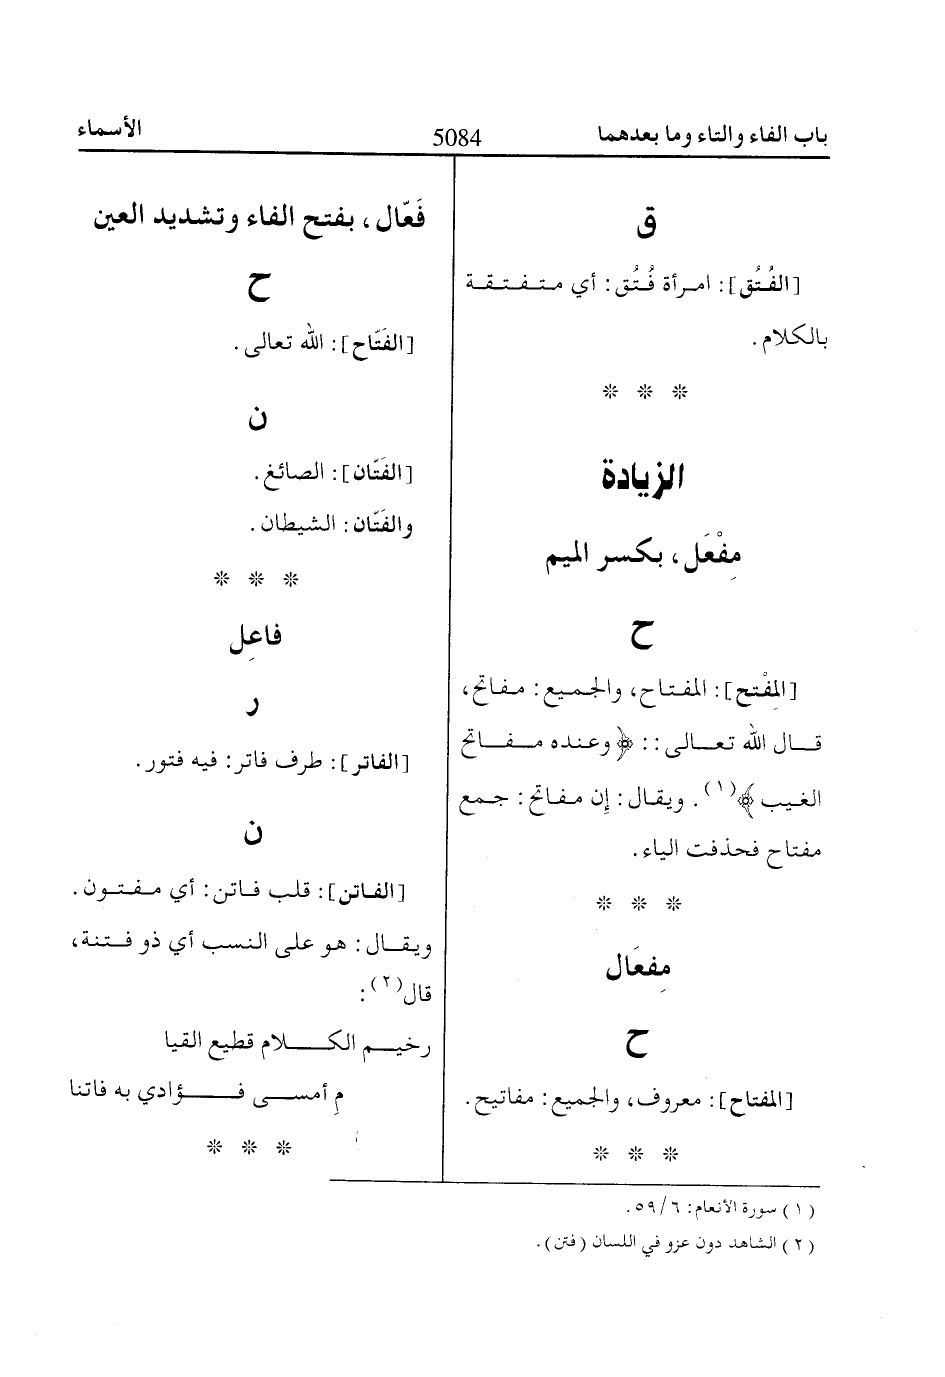 باب الفاء والتاء وما بعدهما
5084
الأسماء
ق
[الفُتُق]: امرأة فُتُق: أي متفتقة
بالكلام.
* * *
الزيادة
مِفْعَل، بكسر الميم
ح
[المِفْتح]: المفتاح، والجميع: مفاتح،
قال الله تعالى:: ﴿وعنده مفاتح
الغيب﴾(١). ويقال: إن مفاتح: جمع
مفتاح فحذفت الياء.
* * *
مِفعَال
ح
[المفتاح]: معروف، والجميع: مفاتيح.
* * *
فَعّال، بفتح الفاء وتشديد العين
ح
[الفَتّاح]: الله تعالى.
ن
[الفَتّان]: الصائغ.
والفَتّان: الشيطان.
* * *
فاعِل
ر
[الفاتر]: طرف فاتر: فيه فتور.
ن
[الفاتن]: قلب فاتن: أي مفتون.
ويقال: هو على النسب أي ذو فتنة،
قال(٢):
رخيم الكلام قطيع القيا
مِ أمسى فؤادي به فاتنا
* * *
(١) سورة الأنعام: ٦/ ٥٩.
(٢) الشاهد دون عزو في اللسان (فتن).